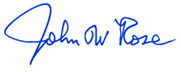 John W Rose